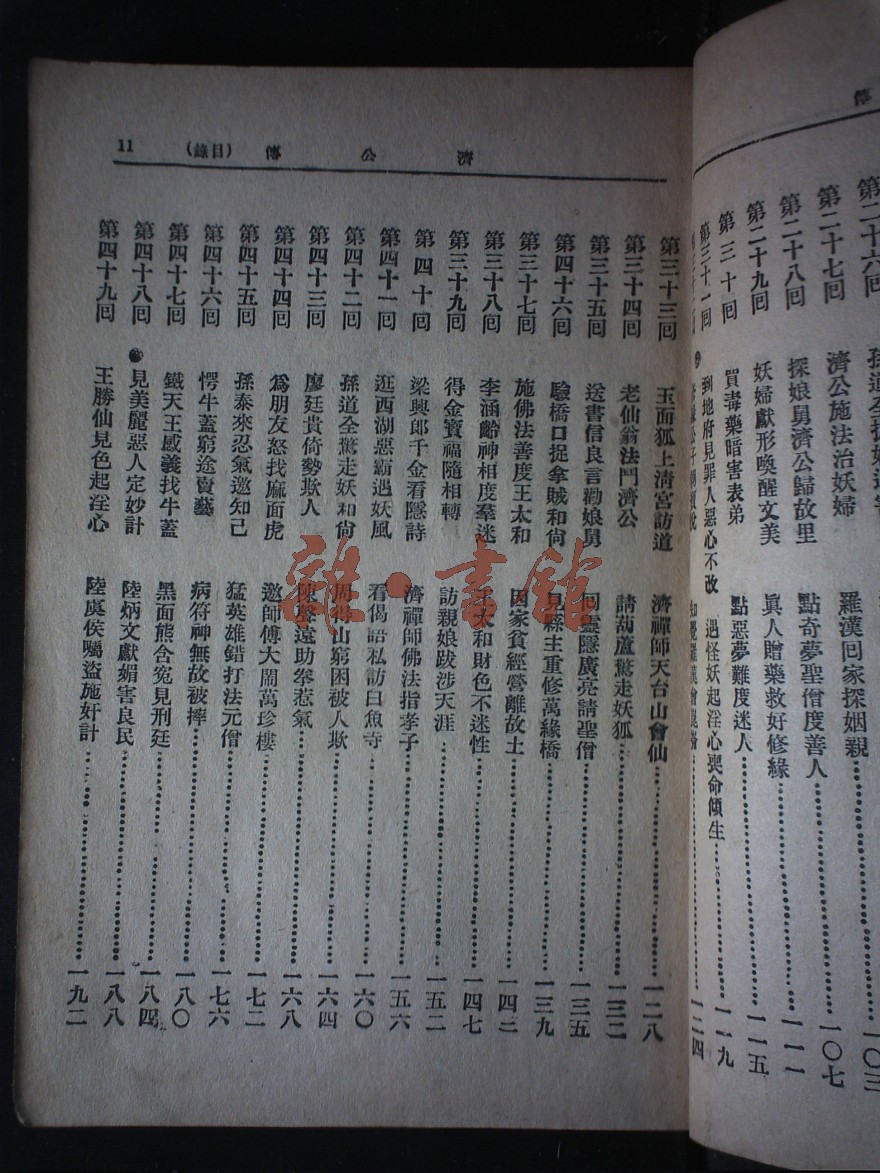 傳
第二十六回
第二十七回 濟公施法治妖婦 羅漢回家探姻親 一〇三
第二十八回 探娘舅濟公歸故里 點奇夢聖僧度善人 一〇七
第二十九回 妖婦獻形喚醒文美 眞人贈藥救好修緣 一一一
第三十回 買毒藥暗害表弟 點惡夢難度迷人 一一五
第三十一回 到地府見罪人惡心不改 遇怪妖起淫心喪命傾生 一一九
一二四
濟公傳 (目錄) 11
第三十三回 玉面狐上淸宮訪道 濟禪師天台山會仙 一二八
第三十四回 老仙翁法鬥濟公 請葫蘆驚走妖狐 一三二
第三十五回 送書信良言勸娘舅 回靈隱廣亮請聖僧 一三五
第四十六回 驗橋口捉拿賊和尙 見縣主重修萬緣橋 一三九
第三十七回 施佛法善度王太和 因家貧經營離故土 一四三
第三十八回 李涵齡神相度羣迷 王太和財色不迷性 一四七
第三十九回 得金寶福隨相轉 訪親娘跋涉天涯 一五二
第四十回 梁興郎千金看隱詩 濟禪師佛法指孝子 一五六
第四十一回 逛西湖惡霸遇妖風 看偈語私訪白魚寺 一六〇
第四十二回 孫道全驚走妖和尙 周得山窮困被人欺 一六四
第四十三回 廖廷貴倚勢欺人 陳聲遠助拳惹氣 一六八
第四十四回 爲朋友怒找麻面虎 邀師傅大鬧萬珍樓 一七二
第四十五回 孫泰來忍氣邀知己 猛英雄錯打法元僧 一七六
第四十六回 愣牛蓋窮途賣藝 病符神無故被摔 一八〇
第四十七回 鐵天王感義找牛蓋 黑面熊含冤見刑廷 一八四
第四十八回 見美麗惡人定妙計 陸炳文獻媚害良民 一八八
第四十九回 王勝仙見色起淫心 陸虞侯囑盜施奸計 一九二
雜·書館